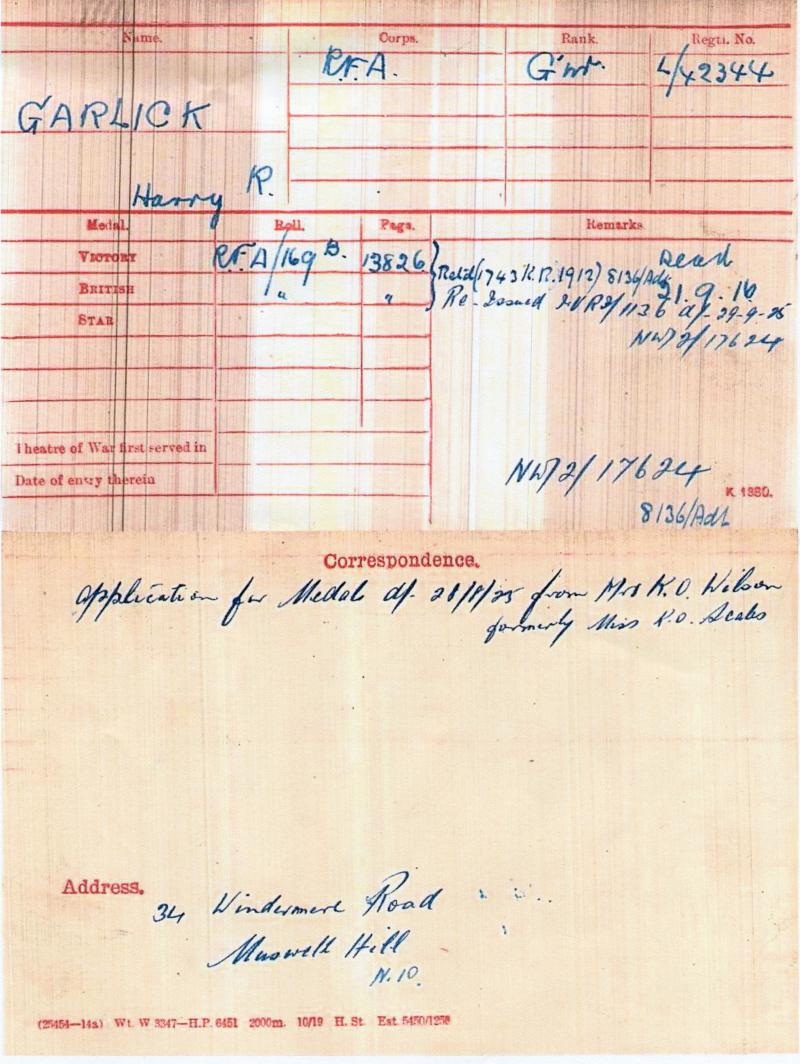 Name. Corps. Rank. Regtl. No.
R.F.A. Gnr. L/42344
GARLICK
Harry R.
Medal. Roll. Page. Remarks
VICTORY RFA/169 B. 13826 Dead
BRITISH " " Retd (1743 K.R. 1912) 8136/Adt 21.9.16
Re-Issued 2/1136 d/- 29-9-25
STAR
NW/2/17624
Theatre of War first served in
Date of entry therein
NW/2/17624
K 1380.
8136/Adt
Correspondence.
Application for Medals d/- 28/8/25 from Mrs K.O. Wilson
formerly Miss K.O. Scales
Address.
34 Windermere Road
Muswell Hill
N.10.
(25454—14a) Wt. W 3347—H.P. 6451 2000m. 10/19 H. St. Est. 5450/1258